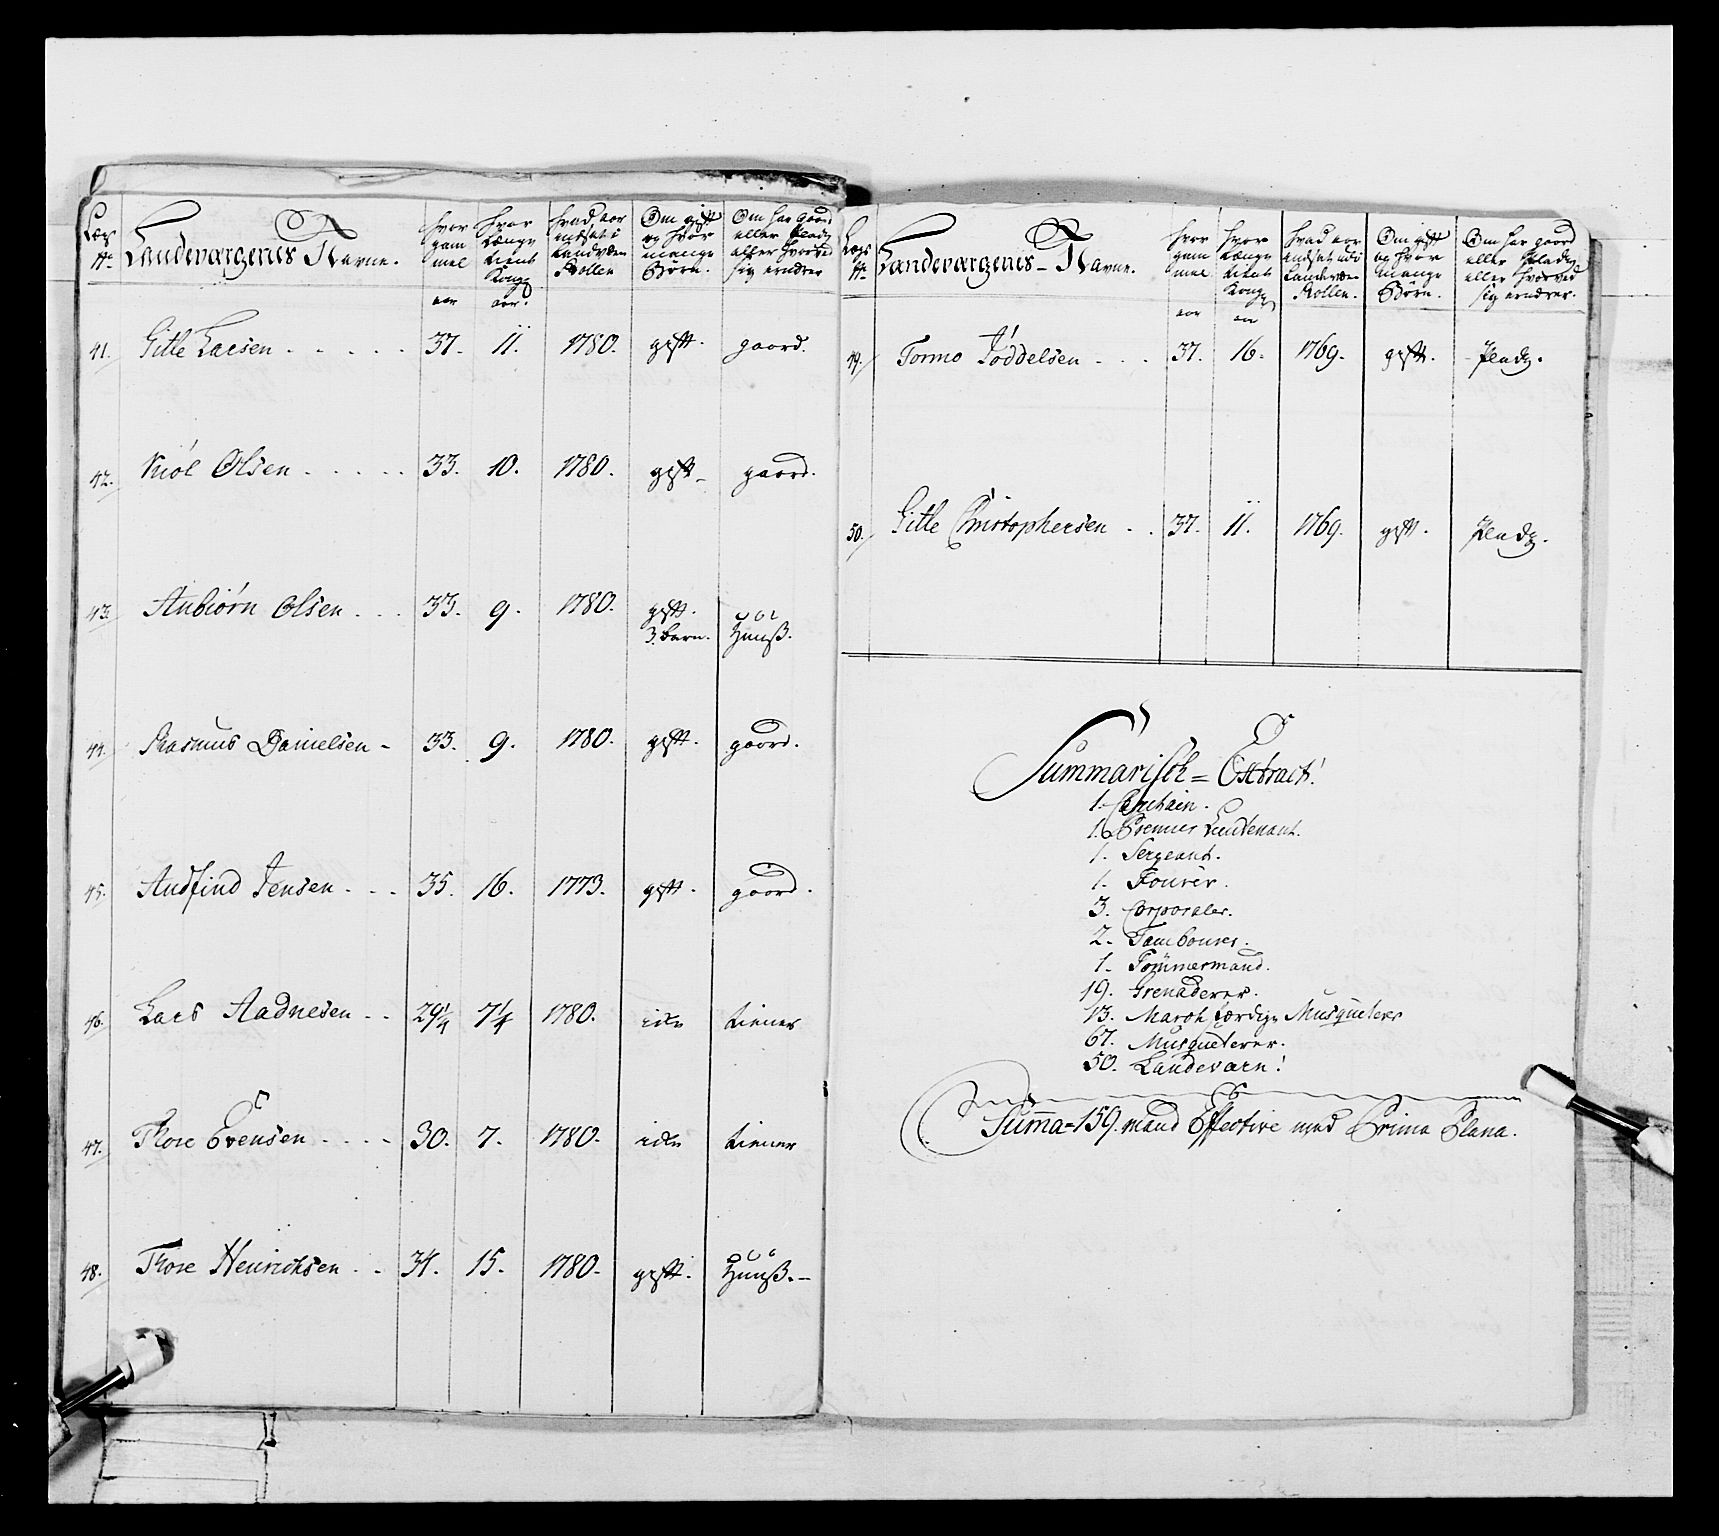 Lægs No Landeværgenes Navne. hvor gammel aar hvor længe tient Kong aar. hvad aar indsat i Landværn Rollen Om gift og hvor mange Börn. Om har gaard eller Plads eller hvorved sig ernærer
41. Gitle Larsen - - - - - 37. 11. 1780. gift. gaard.
42. Kiöl Olsen - - - - - 33. 10. 1780. gift - gaard.
43. Anbiörn Olsen - - - 33. 9. 1780. gift. Huuß.
3. barn.
44. Rasmus Danielsen - 33. 9. 1780. gift. gaard.
45. Audfind Jensen - - - 35. 16. 1773. gift. gaard.
46. Lars Aadnesen - - 29¼ 7¼ 1780. icke tiener
47. Thore Evensen - - - - 30. 7. 1780. icke tiener
48. Thore Henrichsen - - 34. 15. 1780. gift. Huuß. -
Lægs No Landeværgenes - Navne. hvor gammel aar hvor længe tient Kong aar hvad aar indsat udi Landeværn Rollen. Om gift og hvor mange Börn. Om har gaard eller Plads eller hvorved sig ernærer.
49. Tormo Töddelsen - - - 37. 16. 1769. gift. Plads.
50. Gitle Christophersen - - 37. 11. 1769. gift. Plads.
Summarisch = Extract!
1. Capitain.
1. Premier Lieutenant.
1. Sergeant.
1. Fourer.
3. Corporaler.
2. Tambourer.
1. Tömmermand.
19. Grenaderer.
13. March færdige Musqueterer
67. Musqueterer.
50. Landeværn!
Summa = 159. mand Effective med Prima Plana.